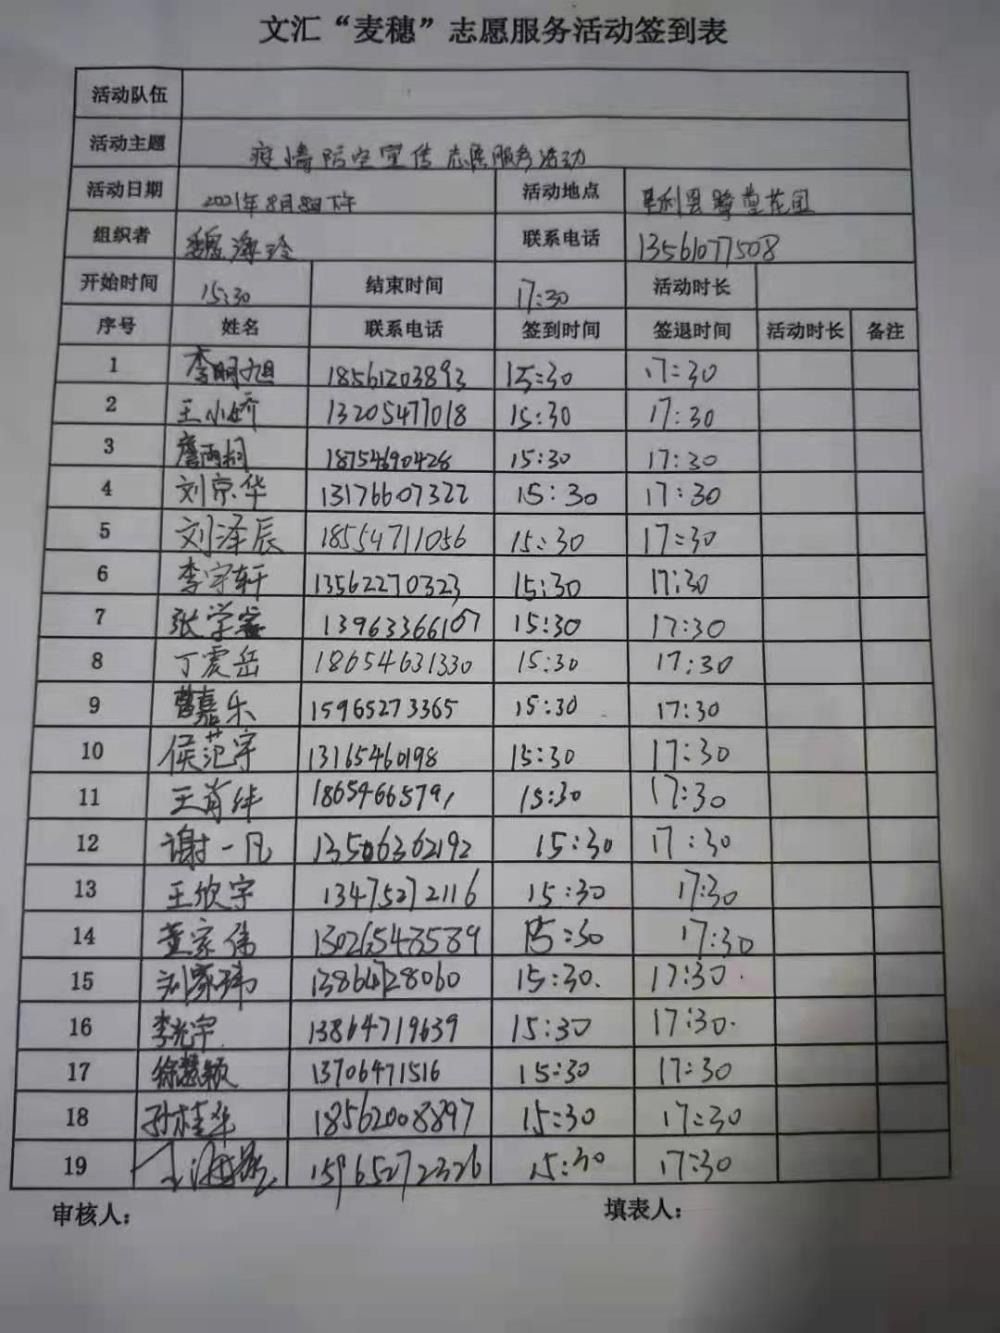 文汇“麦穗”志愿服务活动签到表
活动队伍
活动主题 疫情防空宣传志愿服务活动
活动日期 2021年8月8日下午 活动地点 垦利县 花园
组织者 魏海玲 联系电话 13561077508
开始时间 15:30 结束时间 17:30 活动时长
序号 姓名 联系电话 签到时间 签退时间 活动时长 备注
1 李明旭 18561203893 15:30 17:30
2 王小娇 13205477018 15:30 17:30
3 18754690428 15:30 17:30
4 刘京华 13176607322 15:30 17:30
5 刘泽辰 18554711056 15:30 17:30
6 李宇轩 13562270323 15:30 17:30
7 张学睿 13963366107 15:30 17:30
8 丁震岳 18654631330 15:30 17:30
9 曹嘉乐 15965273365 15:30 17:30
10 侯范宇 13165460198 15:30 17:30
11 王肖 18654665791 15:30 17:30
12 谢一凡 13506362192 15:30 17:30
13 王欣宇 13475272116 15:30 17:30
14 董家伟 13026548589 15:30 17:30
15 刘家玮 13864728060 15:30. 17:30.
16 李光宇 13864719639 15:30 17:30.
17 徐慧颖 13706471516 15:30 17:30
18 孙桂华 18562008897 15:30 17:30
19 15965272326 15:30 17:30
审核人： 填表人：